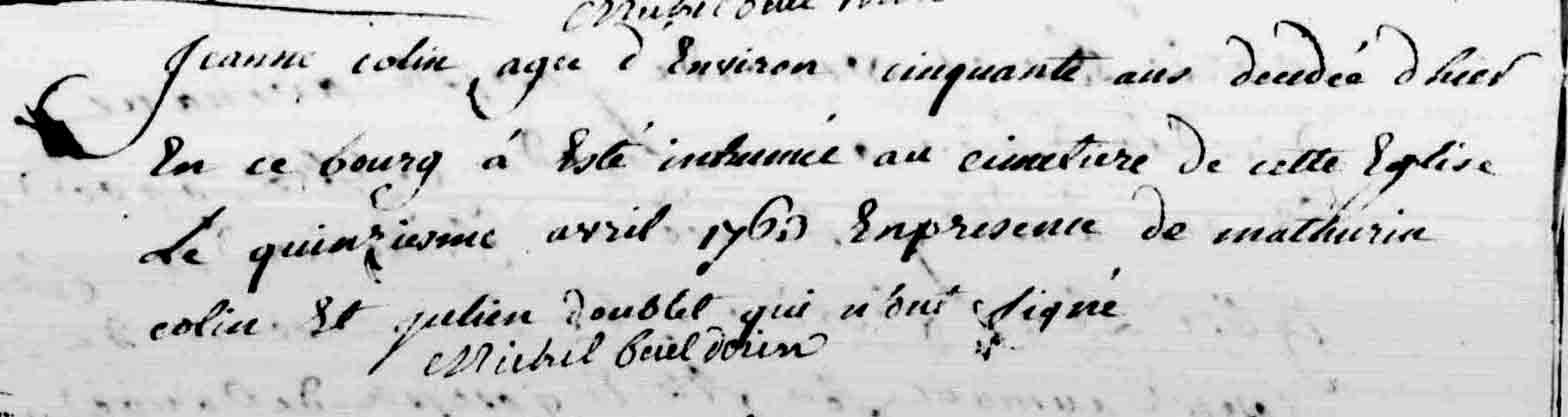 Jeanne colin agée d'Environ cinquante ans decedée d'hier
En ce bourg á Esté inhumée au cimetiere de cette Eglise
Le quinziesme avril 1763 En presence de mathurin
colin Et julien doublet qui n'ont signé
Michel